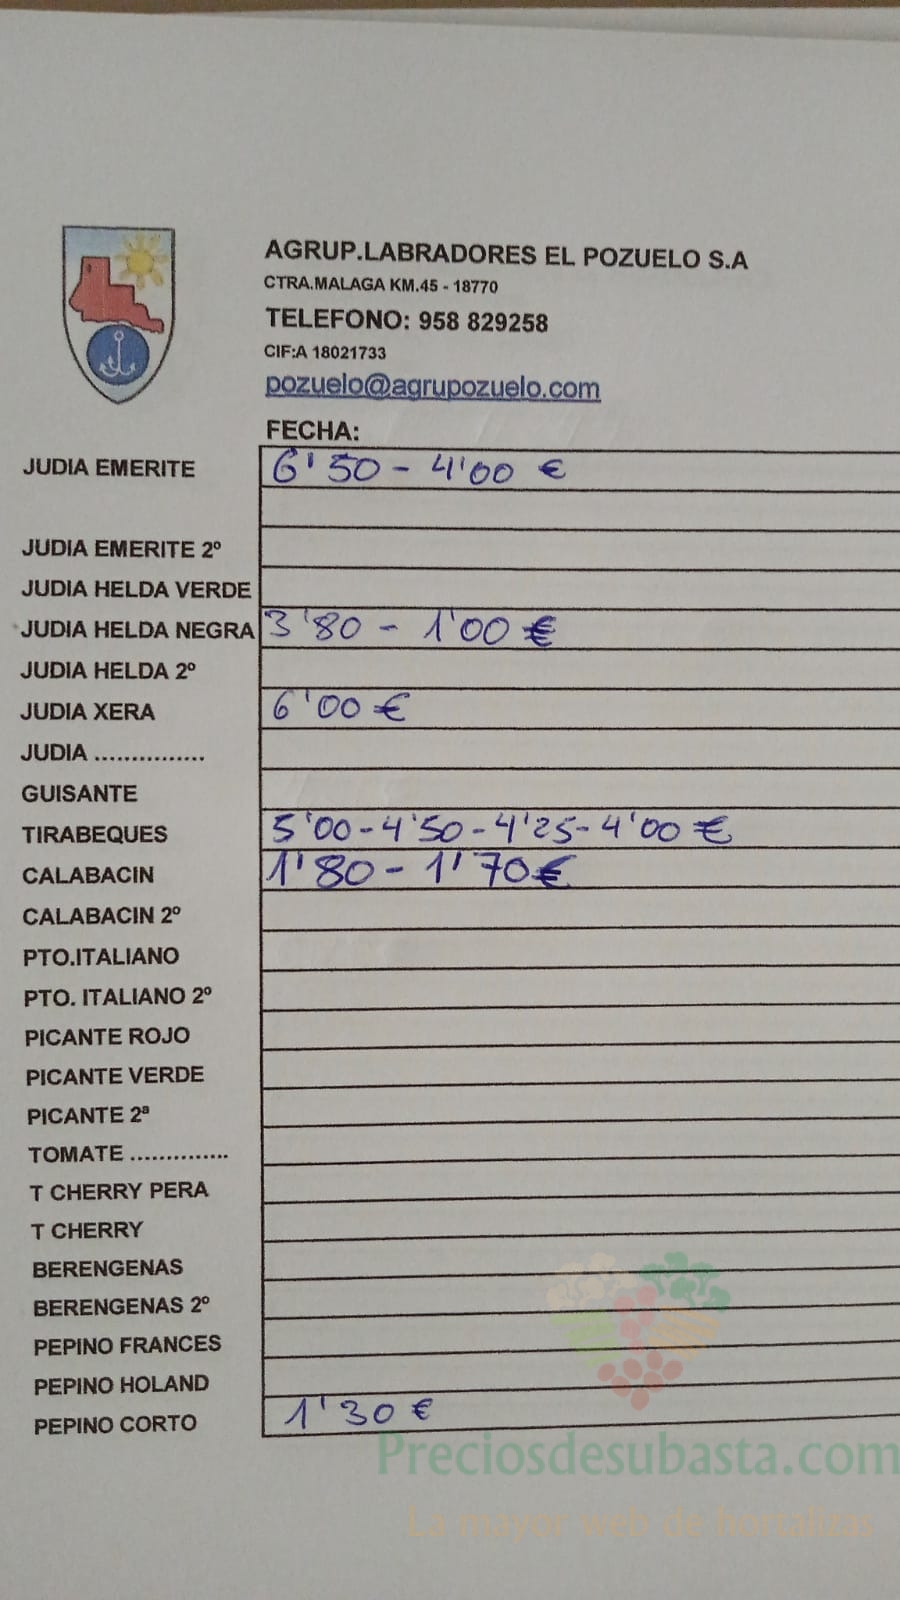 AGRUP.LABRADORES EL POZUELO S.A
CTRA.MALAGA KM.45 - 18770
TELEFONO: 958 829258
CIF:A 18021733
pozuelo@agrupozuelo.com
FECHA:
JUDIA EMERITE 6'50 - 4'00 €
JUDIA EMERITE 2º
JUDIA HELDA VERDE
JUDIA HELDA NEGRA 3'80 - 1'00 €
JUDIA HELDA 2º
JUDIA XERA 6'00 €
JUDIA ...............
GUISANTE
TIRABEQUES 5'00-4'50-4'25-4'00 €
CALABACIN 1'80 - 1'70 €
CALABACIN 2º
PTO.ITALIANO
PTO. ITALIANO 2º
PICANTE ROJO
PICANTE VERDE
PICANTE 2ª
TOMATE ..............
T CHERRY PERA
T CHERRY
BERENGENAS
BERENGENAS 2º
PEPINO FRANCES
PEPINO HOLAND
PEPINO CORTO 1'30 €
Preciosdesubasta.com
La mayor web de hortalizas